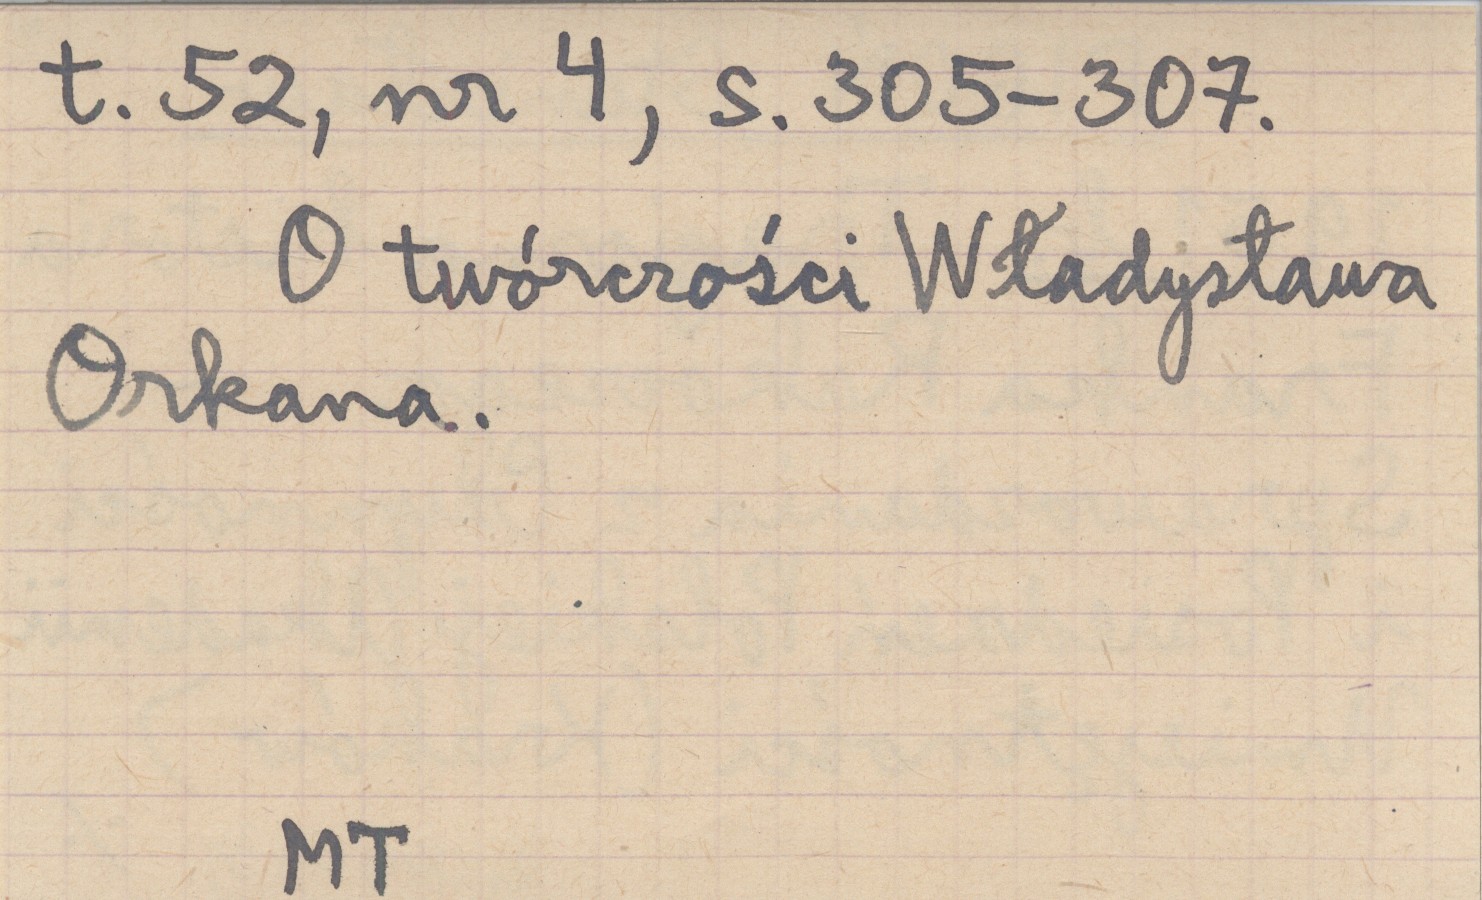 t. 52, nr 4, s. 305-307.
O twórczości Władysława
Orkana.
MT